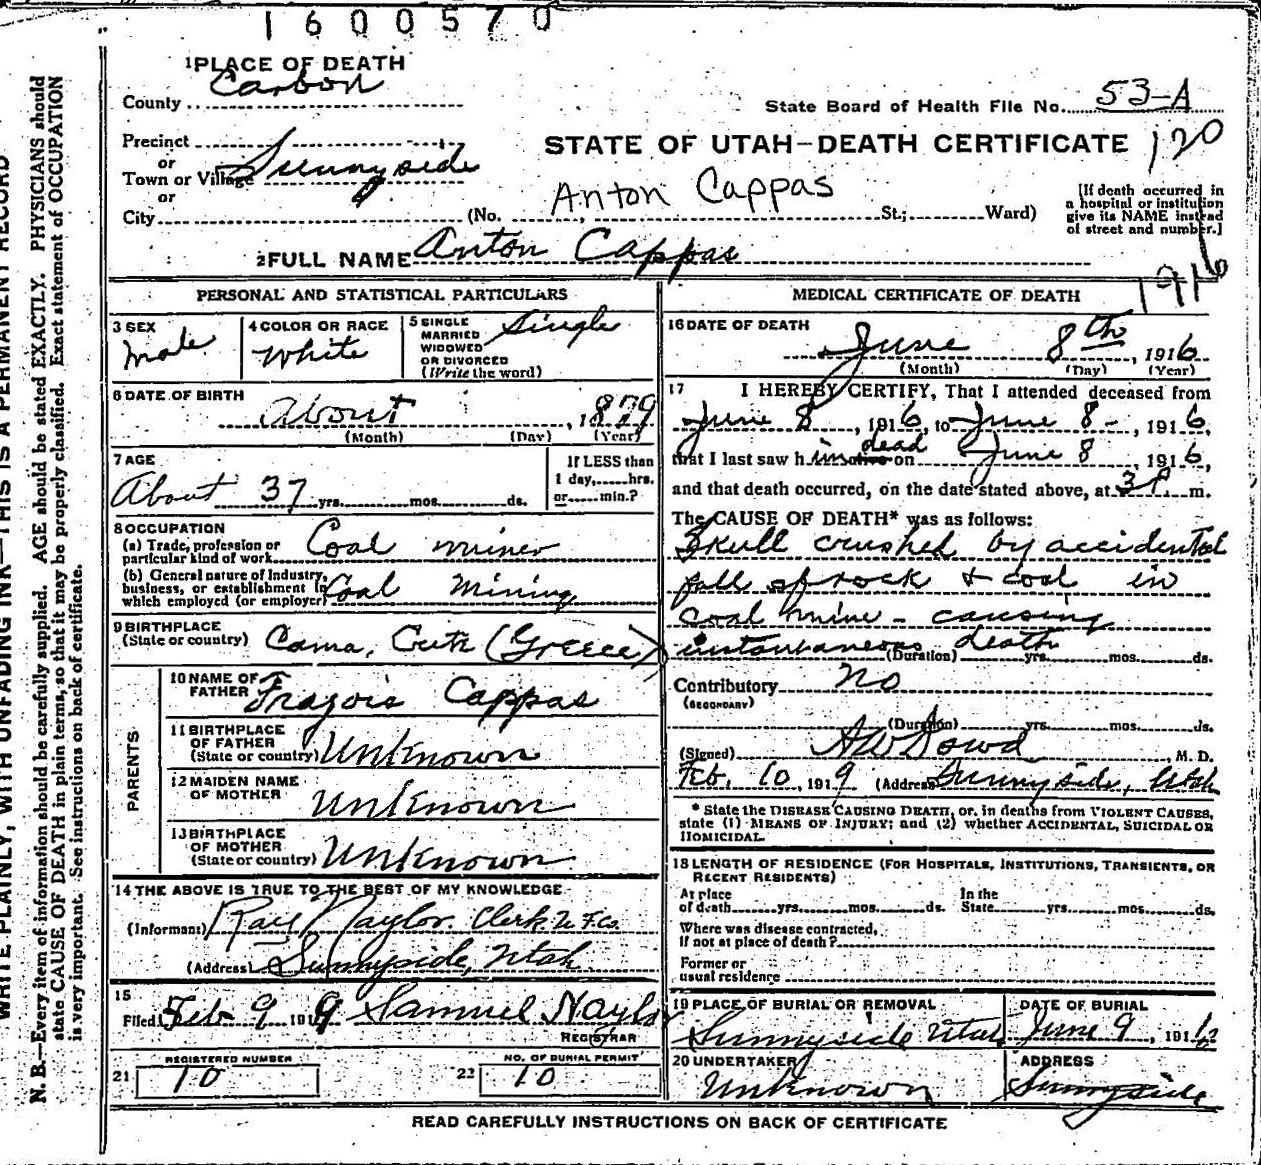 1600570
1 PLACE OF DEATH
County Carbon
State Board of Health File No. 53-A
Precinct
or
Town or Village Sunnyside
or
City (No. St.; Ward)
STATE OF UTAH—DEATH CERTIFICATE 120
Anton Cappas
[If death occurred in
a hospital or institution
give its NAME instead
of street and number.]
2 FULL NAME Anton Cappas
1916
PERSONAL AND STATISTICAL PARTICULARS
3 SEX
Male
4 COLOR OR RACE
White
5 SINGLE
MARRIED
WIDOWED
OR DIVORCED
(Write the word)
Single
6 DATE OF BIRTH
About , 1879
(Month) (Day) (Year)
7 AGE
About 37 yrs. mos. ds.
If LESS than
1 day, hrs.
or min.?
8 OCCUPATION
(a) Trade, profession or
particular kind of work Coal miner
(b) General nature of Industry,
business, or establishment in
which employed (or employer) Coal Mining
9 BIRTHPLACE
(State or country) Cama, Crete (Greece)
PARENTS
10 NAME OF
FATHER Fragois Cappas
11 BIRTHPLACE
OF FATHER
(State or country) Unknown
12 MAIDEN NAME
OF MOTHER Unknown
13 BIRTHPLACE
OF MOTHER
(State or country) Unknown
14 THE ABOVE IS TRUE TO THE BEST OF MY KNOWLEDGE
(Informant) Ray Naylor. Clerk. U.F.Co.
(Address) Sunnyside, Utah
15
Filed Feb 9 1919 Samuel Naylor
REGISTRAR
REGISTERED NUMBER
21 10
NO. OF BURIAL PERMIT
22 10
MEDICAL CERTIFICATE OF DEATH
16 DATE OF DEATH
June 8th, 1916
(Month) (Day) (Year)
17 I HEREBY CERTIFY, That I attended deceased from
June 8, 1916, to June 8-, 1916,
that I last saw him alive dead on June 8, 1916,
and that death occurred, on the date stated above, at 3 P. m.
The CAUSE OF DEATH* was as follows:
Skull crushed by accidental
fall of rock & coal in
coal mine - causing
instantaneous death
(Duration) yrs. mos. ds.
Contributory No
(SECONDARY)
(Duration) yrs. mos. ds.
(Signed) A W Dowd M. D.
Feb. 10, 1919 (Address) Sunnyside, Utah
* State the DISEASE CAUSING DEATH, or, in deaths from VIOLENT CAUSES,
state (1) MEANS OF INJURY; and (2) whether ACCIDENTAL, SUICIDAL OR
HOMICIDAL.
18 LENGTH OF RESIDENCE (FOR HOSPITALS, INSTITUTIONS, TRANSIENTS, OR
RECENT RESIDENTS)
At place
of death yrs. mos. ds.
In the
State yrs. mos. ds.
Where was disease contracted,
If not at place of death?
Former or
usual residence
19 PLACE OF BURIAL OR REMOVAL
Sunnyside Utah
DATE OF BURIAL
June 9, 1916
20 UNDERTAKER
Unknown
ADDRESS
Sunnyside
READ CAREFULLY INSTRUCTIONS ON BACK OF CERTIFICATE
WRITE PLAINLY, WITH UNFADING INK—THIS IS A PERMANENT RECORD
N. B.—Every item of information should be carefully supplied. AGE should be stated EXACTLY. PHYSICIANS should
state CAUSE OF DEATH in plain terms, so that it may be properly classified. Exact statement of OCCUPATION
is very important. See instructions on back of certificate.